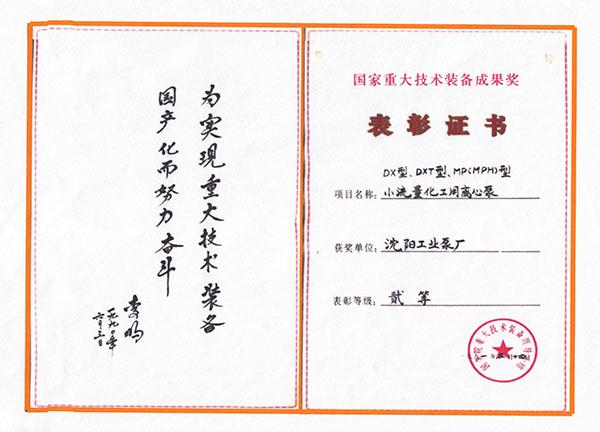 为实现重大技术装备
国产化而努力奋斗
李鹏
一九九〇年
六月三日
国家重大技术装备成果奖
表彰证书
DX型、DXT型、MP(MPH)型
项目名称:小流量化工用离心泵
获奖单位:沈阳工业泵厂
表彰等级:贰等